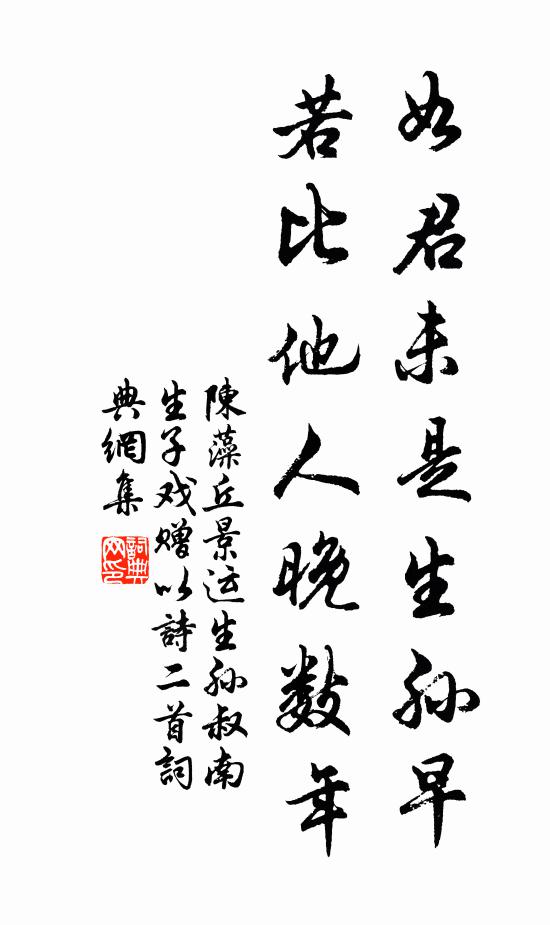 如君未是生孙早
若比他人晚数年
陳藻丘景运生孙叔南
生子戏贈以詩二首詞
典網集
詞典
网印